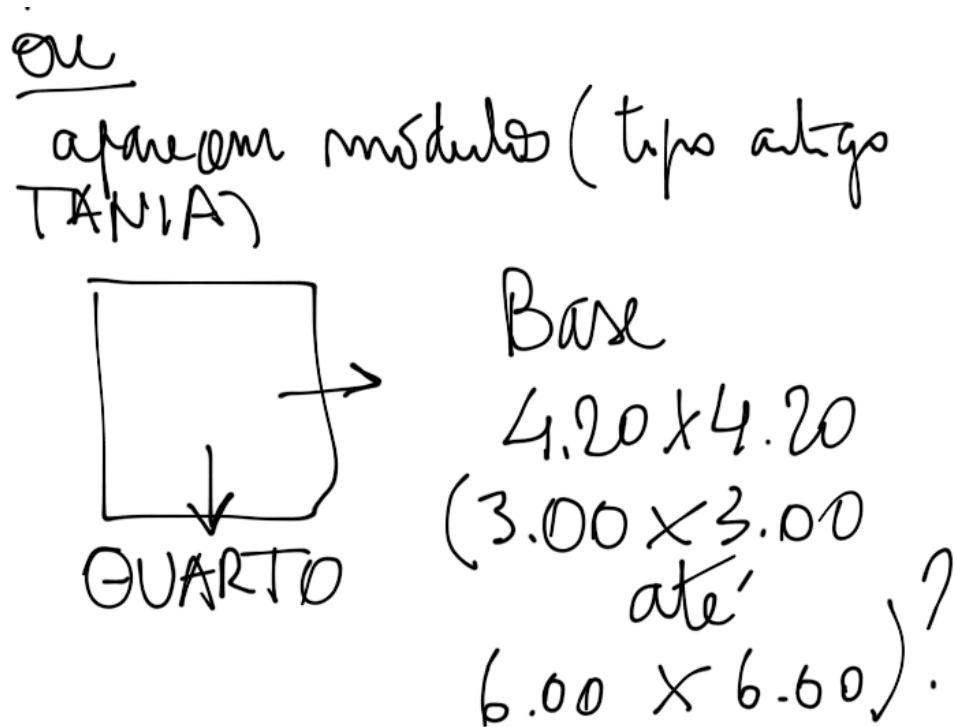 ou
aparecem módulos (tipo artigo
TANIA)
QUARTO
Base
4.20 x 4.20
(3.00 x 3.00
até
6.00 x 6.00)?